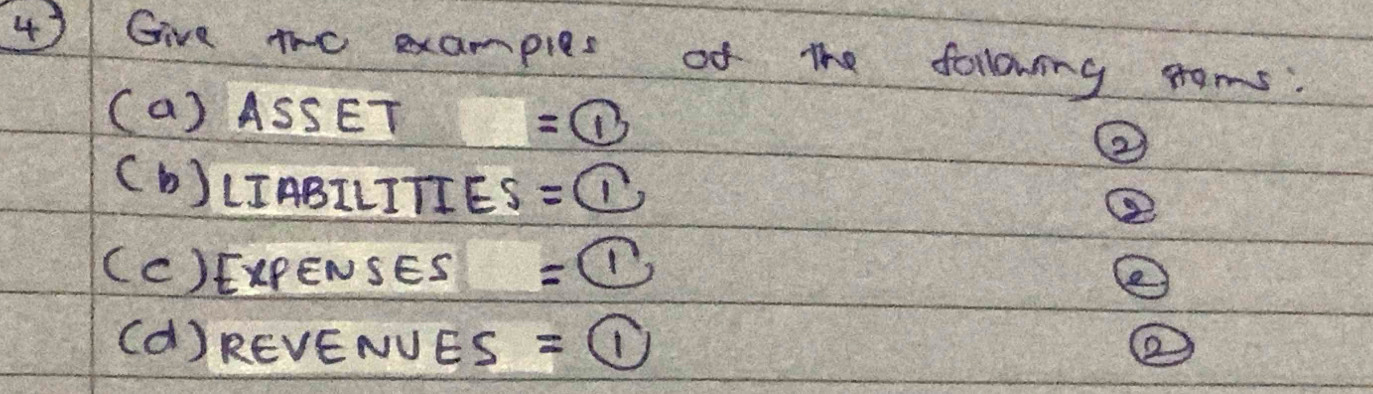 ④ Give two examples of the following items:
(a) ASSET = ① ②
(b) LIABILITIES = ① ②
(c) EXPENSES = ① ②
(d) REVENUES = ① ②